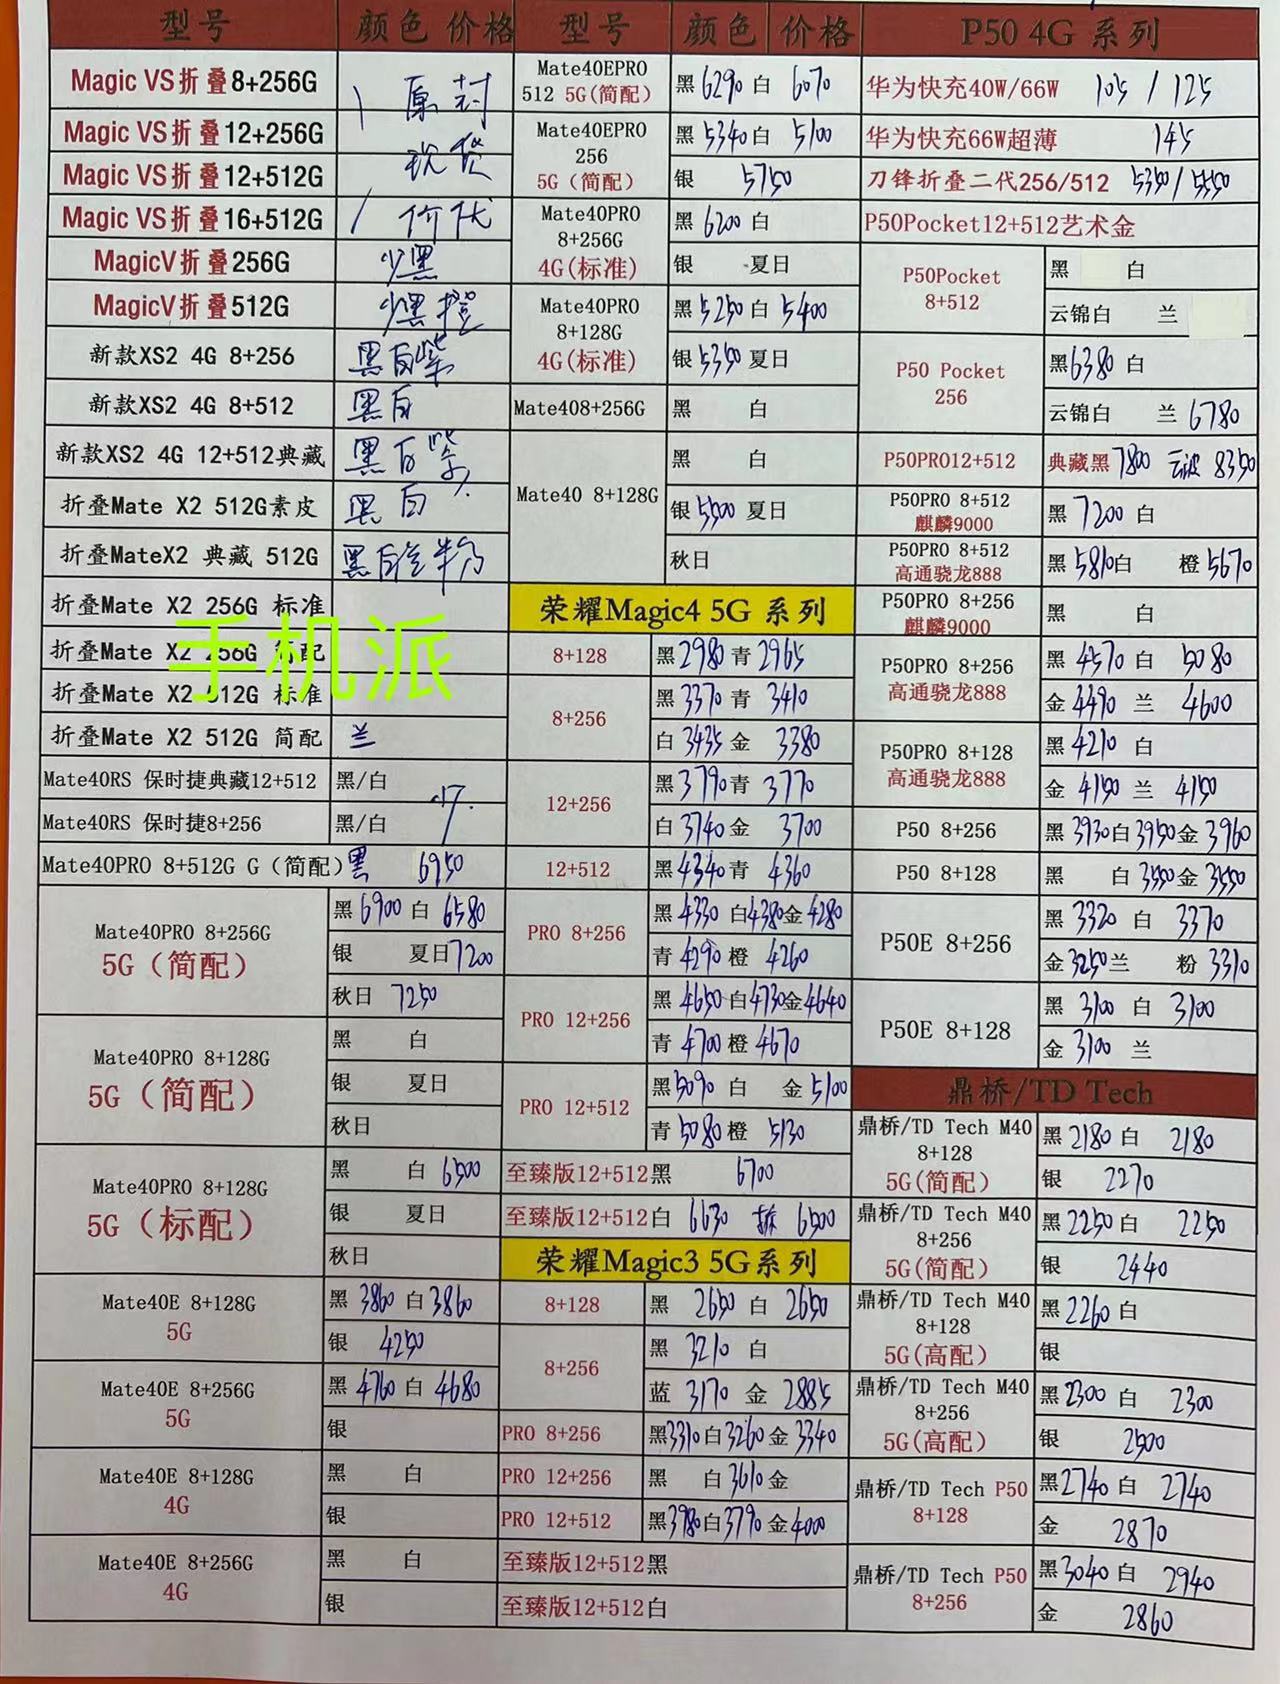 型号 颜色 价格
Magic VS折叠8+256G
Magic VS折叠12+256G 原封
Magic VS折叠12+512G 现货
Magic VS折叠16+512G 价优
MagicV折叠256G 少黑
MagicV折叠512G
新款XS2 4G 8+256 黑白紫
新款XS2 4G 8+512 黑白
新款XS2 4G 12+512典藏 黑白紫
折叠Mate X2 512G素皮 黑白
折叠MateX2 典藏 512G
折叠Mate X2 256G 标准
折叠Mate X2 256G 简配
手机派
折叠Mate X2 512G 标准
折叠Mate X2 512G 简配 兰
Mate40RS 保时捷典藏12+512 黑/白
Mate40RS 保时捷8+256 黑/白
Mate40PRO 8+512G G（简配）黑 6950
Mate40PRO 8+256G
5G（简配）
黑6900 白 6580
银 夏日7200
秋日 7250
Mate40PRO 8+128G
5G（简配）
黑 白
银 夏日
秋日
Mate40PRO 8+128G
5G（标配）
黑 白 6500
银 夏日
秋日
Mate40E 8+128G
5G
黑 3860 白 3860
银 4250
Mate40E 8+256G
5G
黑 4760 白 4680
银
Mate40E 8+128G
4G
黑 白
银
Mate40E 8+256G
4G
黑 白
银
型号 颜色 价格
Mate40EPRO
512 5G(简配)
黑 6290 白 6070
Mate40EPRO
256
5G（简配）
黑 5340 白 5100
银 5750
Mate40PRO
8+256G
4G(标准)
黑 6200 白
银 夏日
Mate40PRO
8+128G
4G(标准)
黑 5250 白 5400
银 5350 夏日
Mate408+256G 黑 白
Mate40 8+128G
黑 白
银 5500 夏日
秋日
荣耀Magic4 5G 系列
8+128 黑 2980 青 2965
8+256
黑 3370 青 3410
白 3435 金 3380
12+256
黑 3790 青 3770
白 3740 金 3700
12+512 黑 4340 青 4360
PRO 8+256
黑 4330 白 4380 金 4280
青 4290 橙 4260
PRO 12+256
黑 4650 白 4730 金 4640
青 4700 橙 4670
PRO 12+512
黑 5090 白 金 5100
青 5080 橙 5130
至臻版12+512黑 6700
至臻版12+512白 6630 拆 6500
荣耀Magic3 5G系列
8+128 黑 2650 白 2650
8+256
黑 3210 白
蓝 3170 金 2885
PRO 8+256 黑 3310 白 3260 金 3340
PRO 12+256 黑 白 3610 金
PRO 12+512 黑 3980 白 3790 金 4000
至臻版12+512黑
至臻版12+512白
P50 4G 系列
华为快充40W/66W 105 / 125
华为快充66W超薄 145
刀锋折叠二代256/512 5350/5550
P50Pocket12+512艺术金
P50Pocket
8+512
黑 白
云锦白 兰
P50 Pocket
256
黑 6380 白
云锦白 兰 6780
P50PRO12+512 典藏黑 7800 云波 8350
P50PRO 8+512
麒麟9000
黑 7200 白
P50PRO 8+512
高通骁龙888
黑 5810 白 橙 5670
P50PRO 8+256
麒麟9000
黑 白
P50PRO 8+256
高通骁龙888
黑 4570 白 5080
金 4490 兰 4600
P50PRO 8+128
高通骁龙888
黑 4210 白
金 4150 兰 4150
P50 8+256 黑 3930 白 3950 金 3960
P50 8+128 黑 白 3550 金 3550
P50E 8+256
黑 3320 白 3370
金 3250 兰 粉 3310
P50E 8+128
黑 3100 白 3100
金 3100 兰
鼎桥/TD Tech
鼎桥/TD Tech M40
8+128
5G(简配)
黑 2180 白 2180
银 2270
鼎桥/TD Tech M40
8+256
5G(简配)
黑 2250 白 2250
银 2440
鼎桥/TD Tech M40
8+128
5G(高配)
黑 2260 白
银
鼎桥/TD Tech M40
8+256
5G(高配)
黑 2300 白 2300
银 2500
鼎桥/TD Tech P50
8+128
黑 2740 白 2740
金 2870
鼎桥/TD Tech P50
8+256
黑 3040 白 2940
金 2860